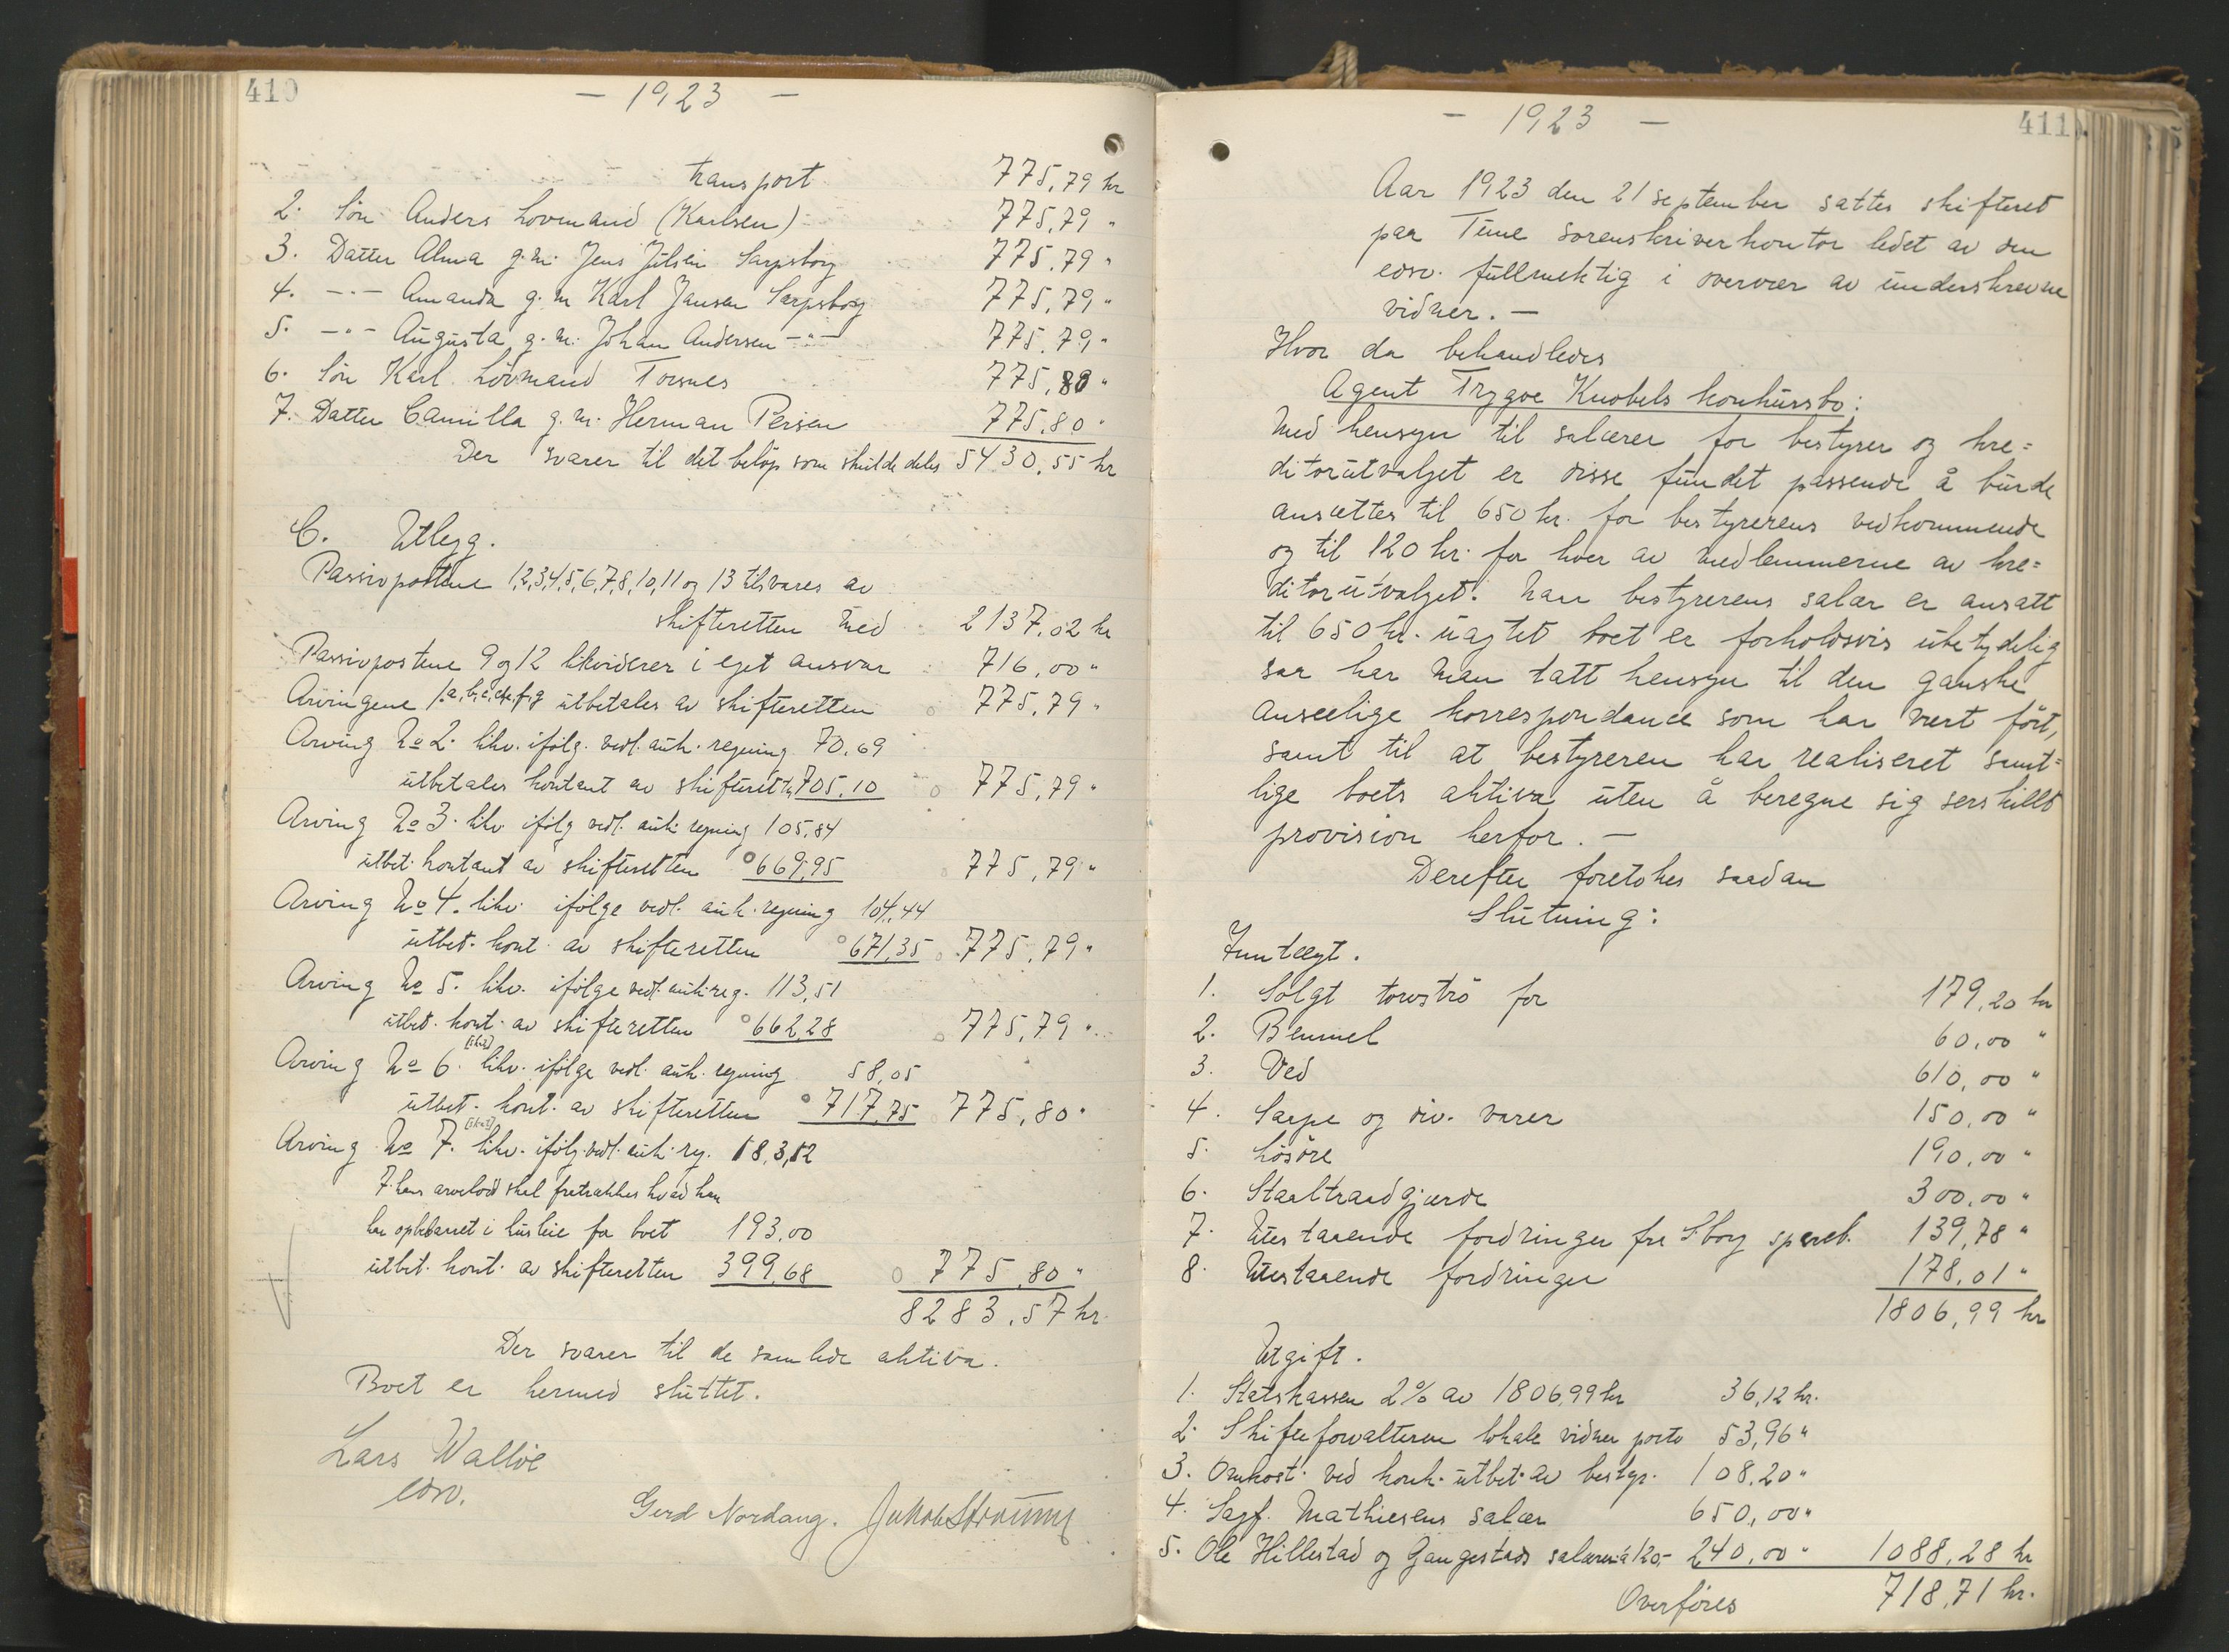 410
- 1923 -
transport 775,79 kr
2. Søn Anders Lovmand (Karlsen) 775,79 "
3. Datter Alma g.m. Jens Julsen Sarpsborg 775,79 "
4. -"- Amanda g.m Karl Jansen Sarpsborg 775,79 "
5. -"- Augusta g.m. Johan Andersen -"- 775,79 "
6. Søn Karl Lövmand Torsnes 775,80 "
7. Datter Camilla g.m. Herman Persen 775,80 "
Der svarer til det belöp som skulde deles 5430,55 kr
C. Utlegg.
Passivpostene 1,2,3,4,5,6,7,8,10,11 og 13 tilsvares av
skifteretten med 2137,02 kr
Passivpostene 9 og 12 likviderer i eget ansvar 716,00 "
Arvingene 1 a,b,c,d,e,f,g utbetales av skifteretten 775,79 "
Arving No 2. likv. ifölg. vedl. auk. regning 70.69
utbetales kontant av skifterett. 705,10 775,79 "
Arving No 3. likv. ifölg vedl. auk. regning 105,84
utbet. kontant av skifteretten 669,95 775,79 "
Arving No 4. likv. ifölge vedl. auk. regning 104,44
utbet. kont. av skifteretten 671,35 775,79 "
Arving No 5. likv. ifölge vedl. auk. reg. 113,51
utbet. kont. av skifteretten 662,28 775,79 "
Arving No 6. likv. ifölge vedl. auk. regning 58,05
utbet. kont. av skifteretten 717,75 775,80 "
Arving No 7. likv. ifölg. vedl. auk. rg. 183,12
I hans arvelod skal fratrækkes hvad han
har opebaaret i husleie for boet 193,00
utbet. kont. av skifteretten 399,68 775,80 "
8283,57 kr.
Der svarer til de samlede aktiva.
Boet er hermed sluttet.
Lars Walløe
edsv.
Gerd Nordang. Jakob
411
- 1923 -
Aar 1923 den 21 september sattes skifteret
paa Tune sorenskriverkontor ledet av den
edsv. fullmektig i overvær av underskrevne
vidner. -
Hvor da behandledes
Agent Trygve Knobels konkursbo:
Med hensyn til salærer for bestyrer og kre=
ditorutvalget er disse fundet passende å burde
ansættes til 650 kr. for bestyrerens vedkommende
og til 120 kr. for hver av medlemmerne av kre=
ditorutvalget. Naar bestyrerens salær er ansatt
til 650 kr. uagtet boet er forholdsvis ubetydelig
saa har man tatt hensyn til den ganske
anseelige korrespondance som har vert fört,
samt til at bestyreren har realiseret samt=
lige boets aktiva uten å beregne sig serskillt
provision herfor. -
Derefter foretokes saadan
Slutning:
Inntægt.
1. Solgt torvströ for 179,20 kr
2. Bemmel 60,00 "
3. Ved 610,00 "
4. Saape og div. varer 150,00 "
5. Lösöre 190,00 "
6. Staaltraadgjærde 300,00 "
7. Utestaaende fordringer fra S.borg spareb. 139,78 "
8. Utestaaende fordringer 178,01 "
1806,99 kr
Utgift.
1. Statskassen 2% av 1806,99 kr 36,12 kr.
2. Skifteforvalteren lokale vidner porto 53,96 "
3. Omkost. ved konk. utbet. av bestyr. 108,20 "
4. Sagf. Mathiesens salær 650,00 "
5. Ole Hillestad og Gangestads salærer á 120,- 240,00 " 1088,28 kr
Overföres 718,71 kr.